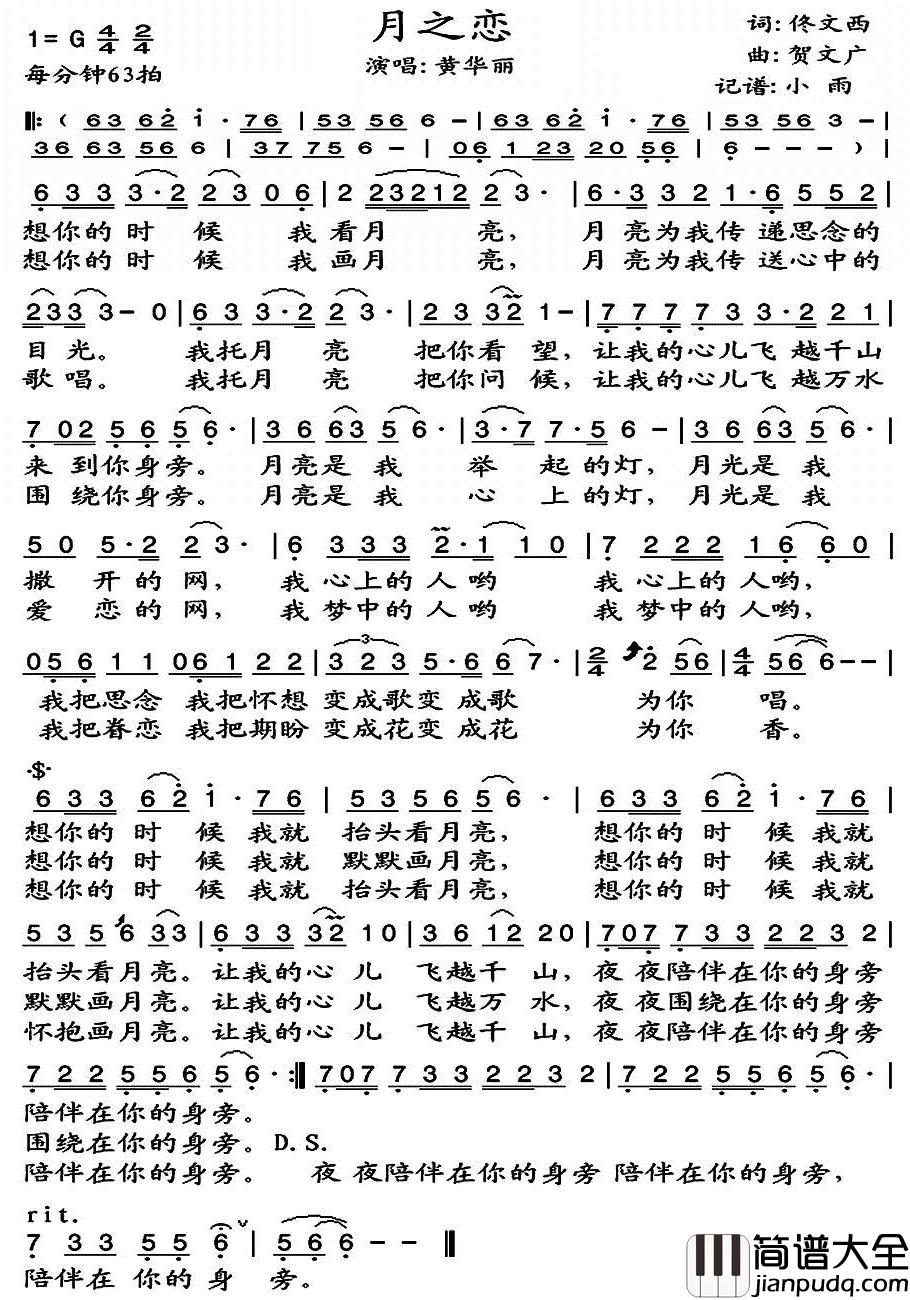 月之恋
1=G 4/4 2/4
每分钟63拍
演唱:黄华丽
词:佟文西
曲:贺文广
记谱:小 雨
‖:( 63 62 i · 76 | 53 56 6 – | 63 62 i · 76 | 53 56 3 – |
36 63 56 6 | 37 75 6 – | 06 1 23 20 56 | 6 – – – ) |
6 33 3·2 23 06 | 2 23212 23· | 6·3 32 1·6 55 2 |
想你的 时 候 我 看月 亮, 月 亮为我传 递思念的
想你的 时 候 我 画月 亮, 月 亮为我传 送心中的
233 3– 0 | 6 3 3 3·2 23· | 2 3 32 1– | 77 7 733 3·2 21 |
目 光。 我托月 亮 把你看 望,让我的心儿飞 越千山
歌 唱。 我托月 亮 把你问 候,让我的心儿飞 越万水
7 02 5 6 5 6· | 3 6 63 5 6· | 3·7 7·5 6 – | 3 6 63 5 6· |
来 到你身旁。 月亮是 我 举 起 的灯, 月光是 我
围 绕你身旁。 月亮是 我 心 上 的灯, 月光是 我
5 0 5·2 2 3· | 6 3 33 2·1 1 0 | 7 2 22 1 6 6 0 |
撒 开 的 网, 我 心上的 人 哟 我 心上的 人哟,
爱 恋 的 网, 我 梦中的 人 哟 我 梦中的 人哟,
056 11 061 22 | 3 2 3 5·6 6 7· | 2/4 2 56 | 4/4 56 6– – |
3
我把思念 我把怀想 变成歌变 成歌 为你 唱。
我把眷恋 我把期盼 变成花变 成花 为你 香。
·$·
6 33 6 2 i · 76 | 53 56 56· | 6 33 6 2 i · 76 |
想你的 时 候 我就 抬头看月亮, 想你的 时 候 我就
想你的 时 候 我就 默默画月亮, 想你的 时 候 我就
想你的 时 候 我就 抬头看月亮, 想你的 时 候 我就
53 5 6 33 | 6 33 32 10 | 36 12 20 | 707 733 223 2 |
抬头看月亮。让我的心 儿 飞越千 山, 夜 夜陪伴在你的身旁
默默画月亮。让我的心 儿 飞越万 水, 夜 夜围绕在你的身旁
怀抱画月亮。让我的心 儿 飞越千 山, 夜 夜陪伴在你的身旁
7 22 556 56· :‖ 707 733 223 2 | 7 22 556 56· |
陪伴在你的身旁。
围绕在你的身旁。D.S.
陪伴在你的身旁。 夜 夜陪伴在你的身旁 陪伴在你的身旁,
rit.
7 33 5 5 6 ∨ | 56 6 – – ‖
陪伴在 你的 身 旁。
简谱大全
jianpudq.com